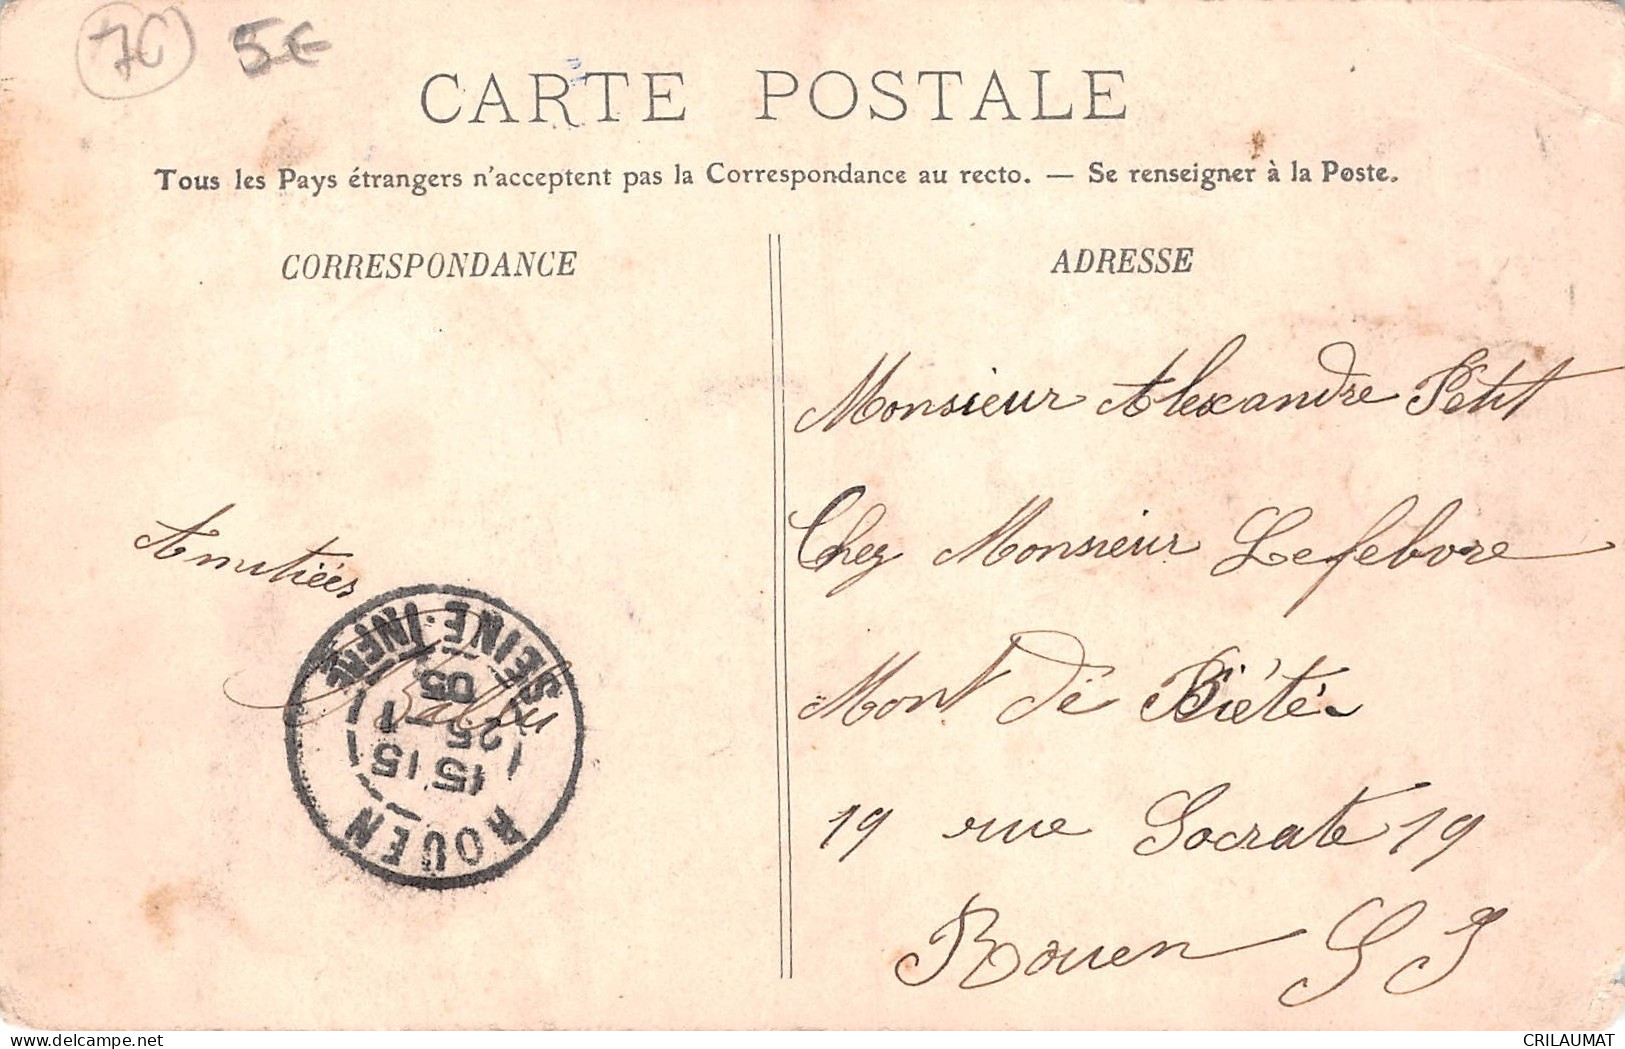 70 5€
CARTE POSTALE
Tous les Pays étrangers n'acceptent pas la Correspondance au recto. — Se renseigner à la Poste.
CORRESPONDANCE
Amitiées
ROUEN
15 15
25 - 1
05
SEINE-INFRE
ADRESSE
Monsieur Alexandre Petit
Chez Monsieur Lefebvre
Mont de Piété
19 rue Socrate 19
Rouen S I
CRILAUMAT